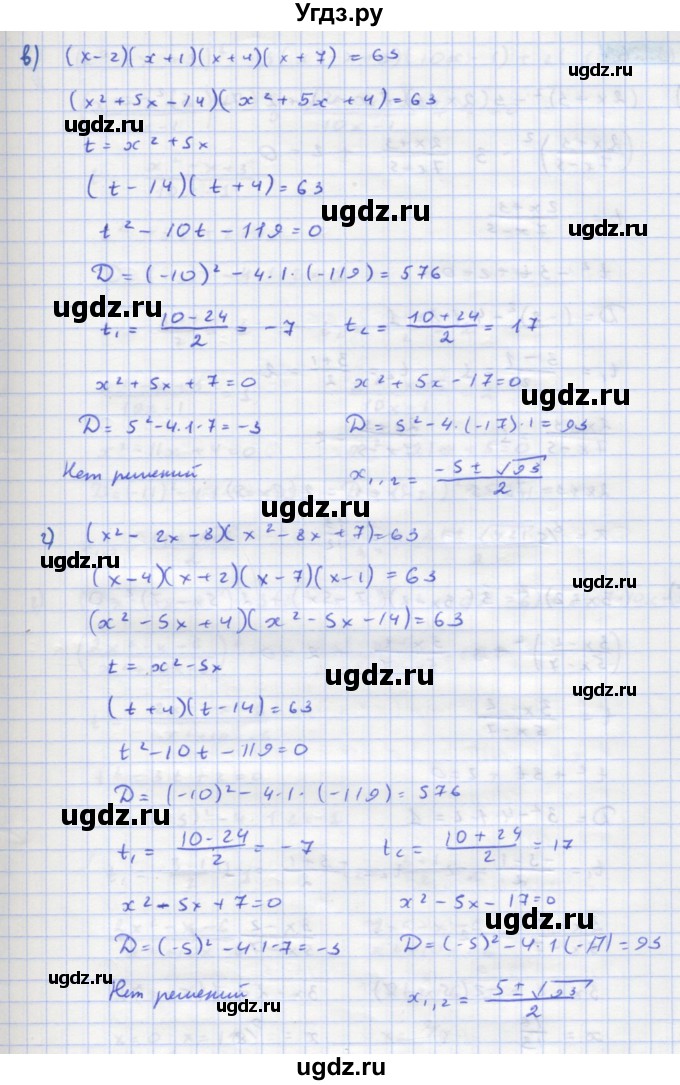 Угдз.ру
в) (x-2)(x+1)(x+4)(x+7) = 63
(x²+5x-14)(x²+5x+4)=63
ugdz.ru
t = x²+5x
(t-14)(t+4)=63
ugdz.ru
t²-10t-119=0
ugdz.ru
D=(-10)²-4·1·(-119)=576
ugdz.ru
t₁ = (10-24)/2 = -7    t₂ = (10+24)/2 = 17
ugdz.ru
x²+5x+7=0    x²+5x-17=0
ugdz.ru
D=5²-4·1·7=-3    D=5²-4·(-17)·1=93
ugdz.ru
Нет решений    x₁,₂ = (-5±√93)/2
ugdz.ru
ugdz.ru
г) (x²-2x-8)(x²-8x+7)=63
ugdz.ru
(x-4)(x+2)(x-7)(x-1) = 63
ugdz.ru
(x²-5x+4)(x²-5x-14)=63
ugdz.ru
t = x²-5x
ugdz.ru
ugdz.ru
(t+4)(t-14)=63
t²-10t-119=0
ugdz.ru
D=(-10)²-4·1·(-119)=576
ugdz.ru
t₁ = (10-24)/2 = -7    t₂ = (10+24)/2 = 17
ugdz.ru
x²-5x+7=0    x²-5x-17=0
ugdz.ru
D=(-5)²-4·1·7=-3    D=(-5)²-4·1(-17)=93
ugdz.ru
Нет решений    x₁,₂ = (5±√93)/2
ugdz.ru
ugdz.ru
ugdz.ru